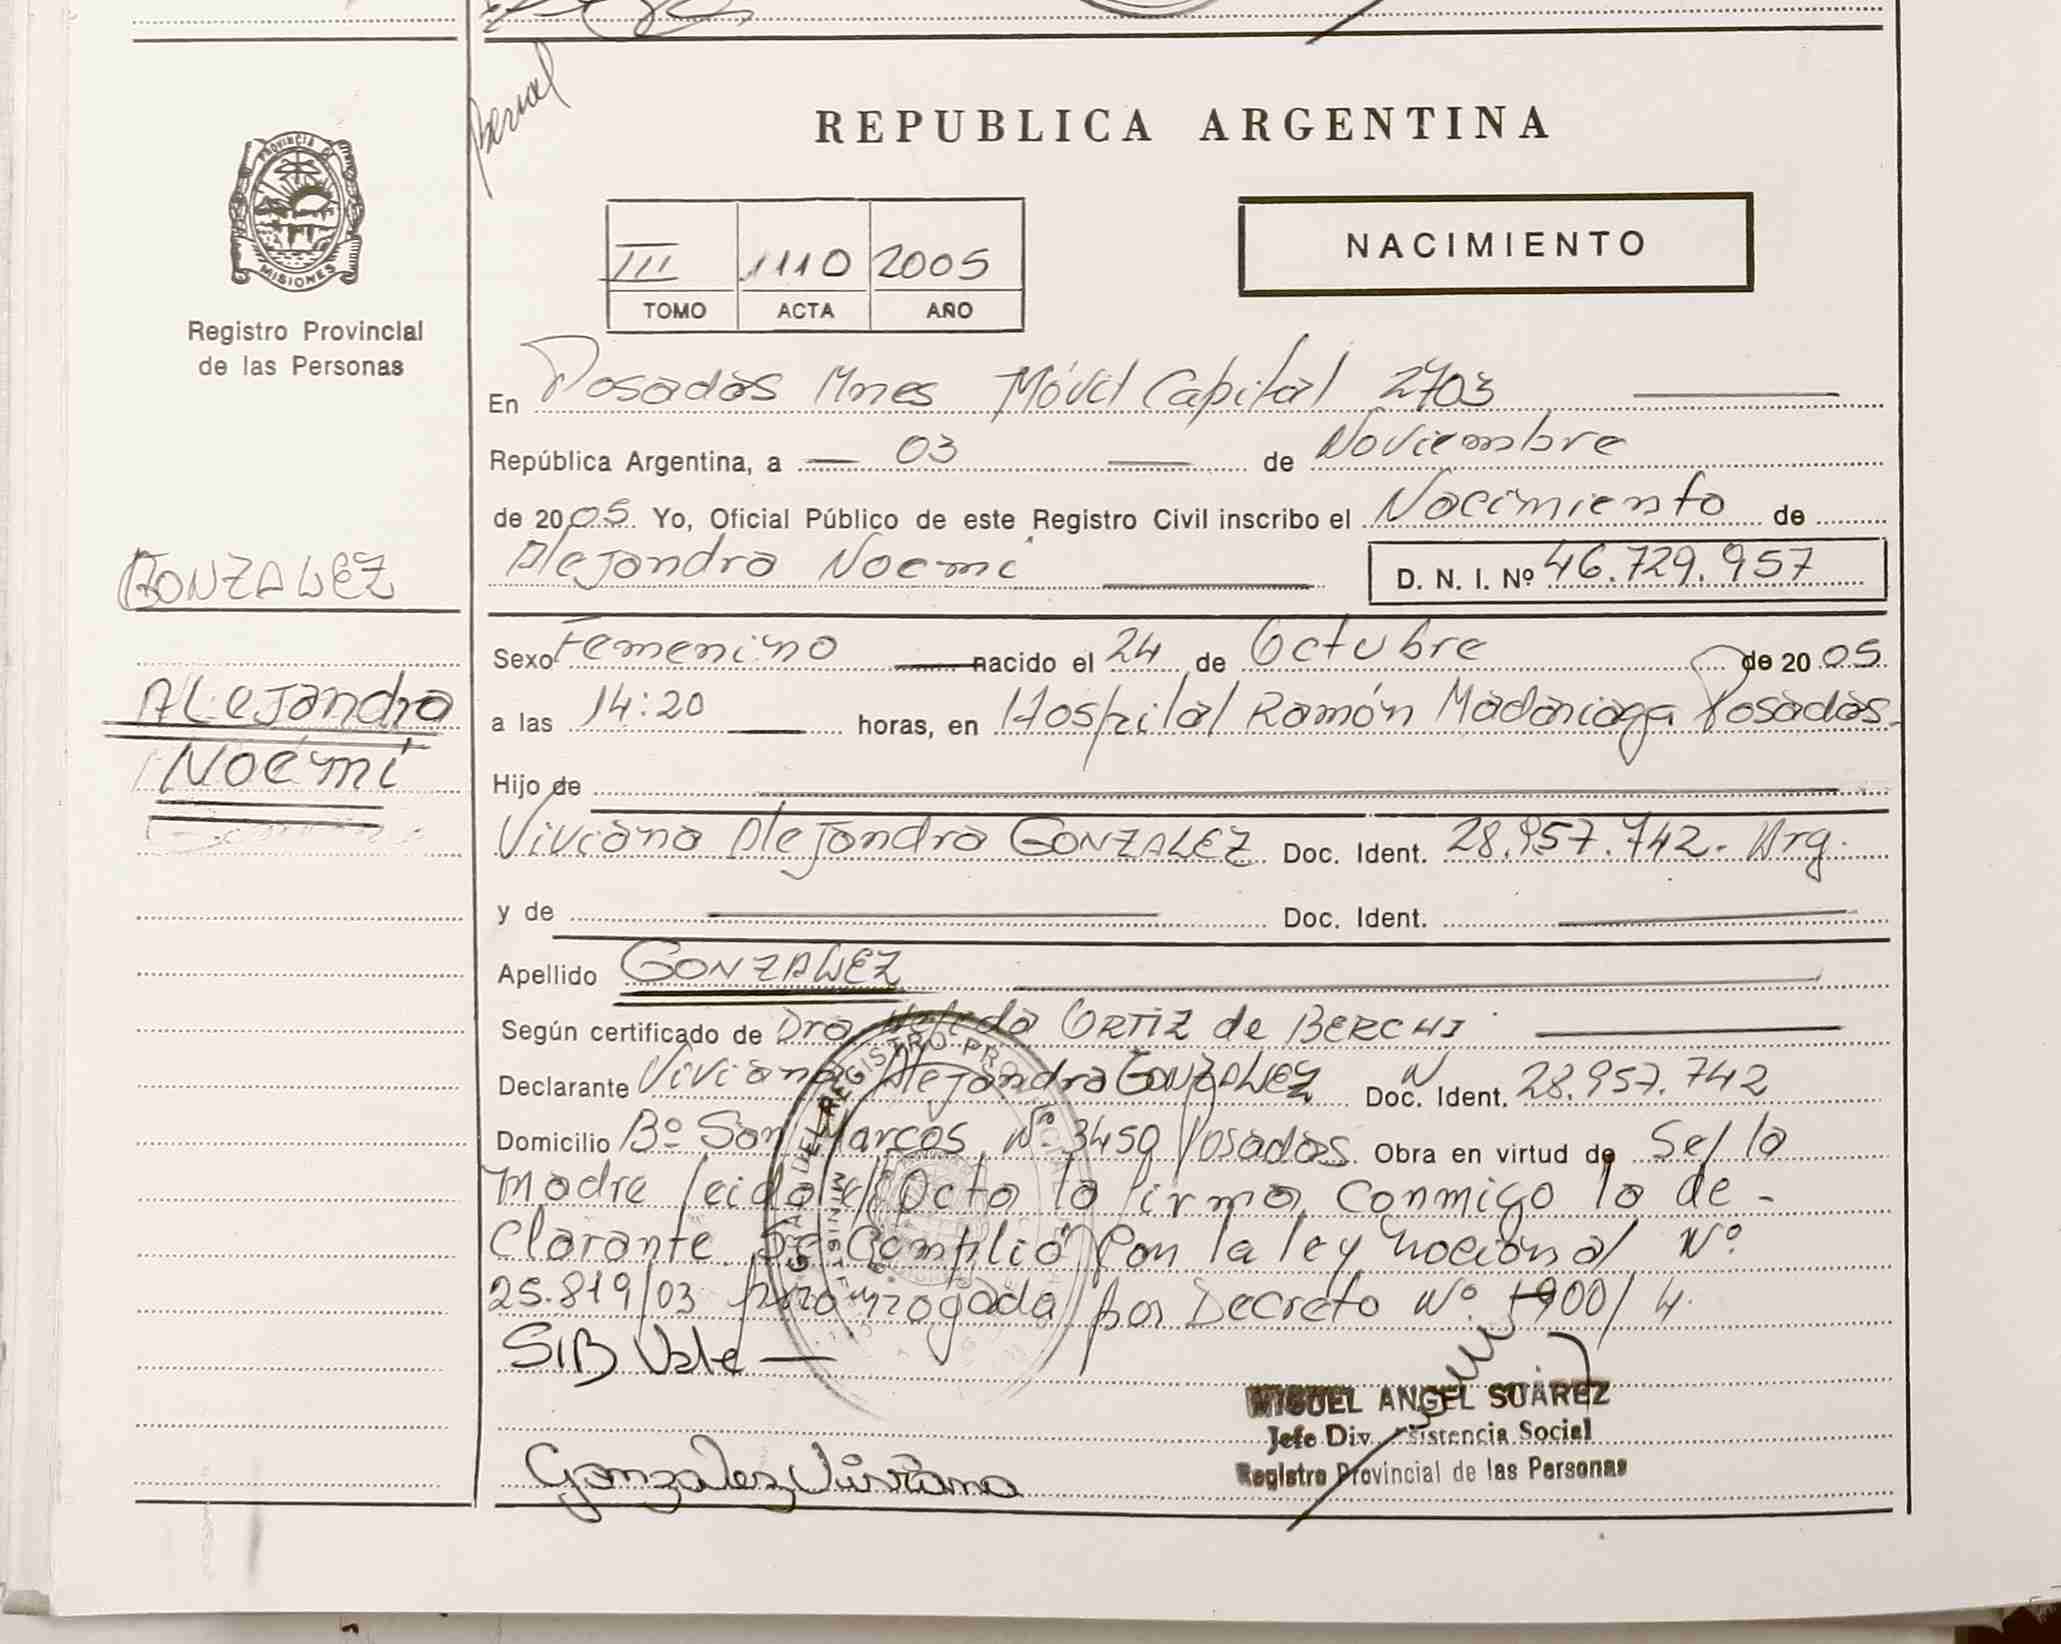 Bernal
REPUBLICA ARGENTINA
PROVINCIA DE
MISIONES
Registro Provincial
de las Personas
III 1110 2005
TOMO ACTA AÑO
NACIMIENTO
En Posadas Mnes Móvil Capital 2703
República Argentina, a 03 de Noviembre
de 2005 Yo, Oficial Público de este Registro Civil inscribo el Nacimiento de
Alejandra Noemí D. N. I. Nº 46.729.957
GONZALEZ
Alejandra
Noemí
Sexo Femenino nacido el 24 de Octubre de 2005
a las 14:20 horas, en Hospital Ramón Madariaga Posadas.
Hijo de
Viviana Alejandra GONZALEZ Doc. Ident. 28.957.742. Arg.
y de Doc. Ident.
Apellido GONZALEZ
Según certificado de Dra Nelida ORTIZ de BERCHI
Declarante Viviana Alejandra GONZALEZ Doc. Ident. 28.957.742
Domicilio Bº San Marcos Nº 3450 Posadas. Obra en virtud de Se/ la
madre leida el Acta la firma conmigo la de-
clarante. Se Complió Con la ley nacional Nº
25.819/03 prorrogada por Decreto Nº 1900/4.
S/B Vale
MIGUEL ANGEL SUAREZ
Jefe Div. Asistencia Social
Registro Provincial de las Personas
Gonzalez Viviana